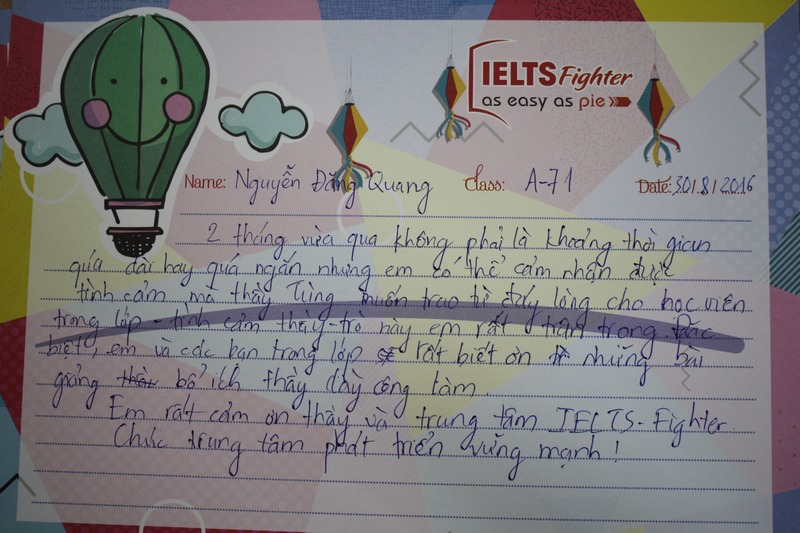 IELTS Fighter
as easy as pie
Name: Nguyễn Đăng Quang Class: A-71 Date: 30/8/2016
2 tháng vừa qua không phải là khoảng thời gian
quá dài hay quá ngắn nhưng em có thể cảm nhận được
tình cảm mà thầy Tùng muốn trao từ đáy lòng cho học viên
trong lớp - tình cảm thầy-trò này em rất trân trọng. Đặc
biệt, em và các bạn trong lớp rất biết ơn những bài
giảng bổ ích thầy dày công làm.
Em rất cảm ơn thầy và trung tâm IELTS-Fighter.
Chúc trung tâm phát triển vững mạnh!